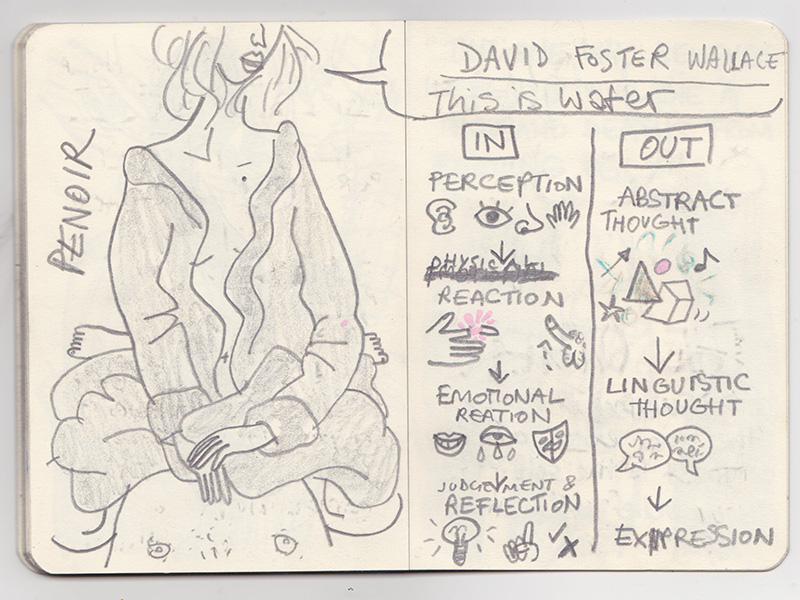 PENOIR
DAVID FOSTER WALLACE
This is water
IN
PERCEPTION
REACTION
EMOTIONAL
REATION
JUDGEMENT &
REFLECTION
OUT
ABSTRACT
THOUGHT
LINGUISTIC
THOUGHT
EXPRESSION